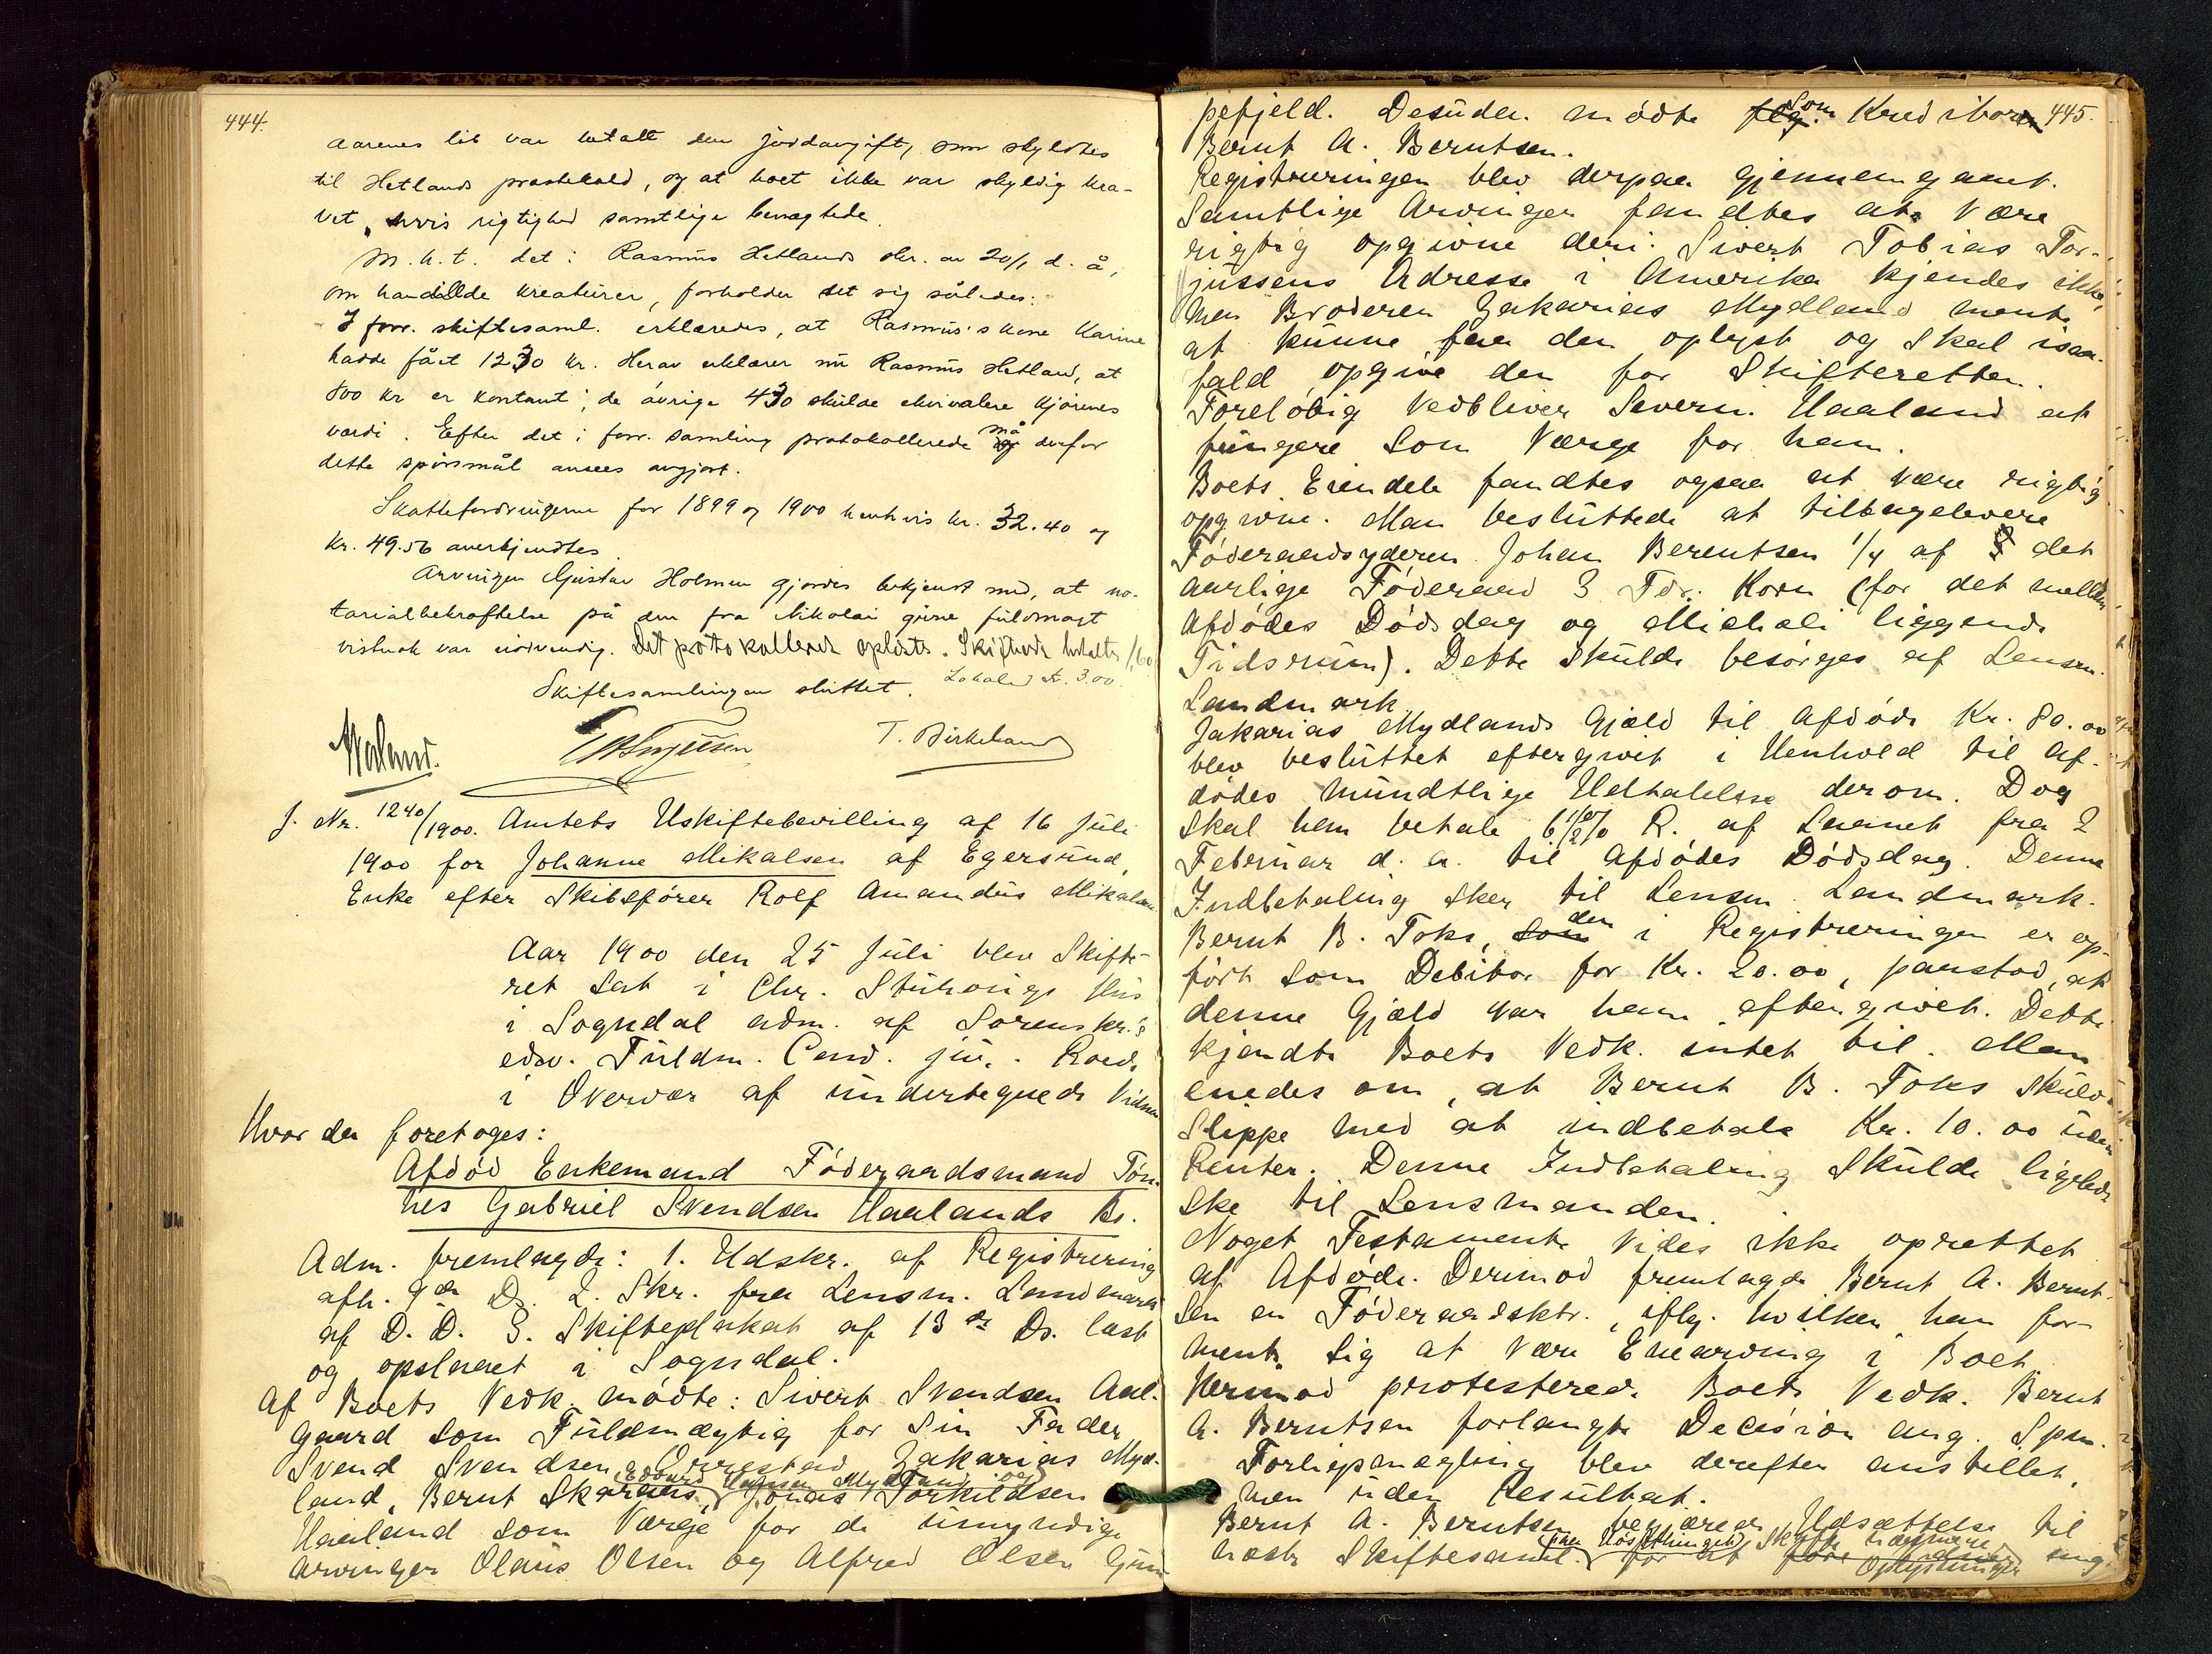 444.
aarenes lib var betalt den jordavgift, som skyldtes
til Hetlands prestebold, og at boet ikke var skyldig kra-
vet, hvis rigtighed samtlige benegtede.
M.h.t. det i Rasmus Hetlands skr. av 20/1 d. å,
om handlede kreaturer, forholder det sig således:
I forr. skiftesaml. erklæredes, at Rasmus's kone Karine
hadde fået 1230 kr. Herav erklærer nu Rasmus Hetland, at
800 kr er kontant; de øvrige 430 skulde ekvivalere kjørenes
værdi. Efter det i forr. samling protokollerede må derfor
dette spørsmål ansees avgjort.
Skattefordringerne for 1899 og 1900 henhvis kr. 32.40 og
kr. 49.56 anerkjendtes.
Arvingen Gustav Holmen gjordes bekjendt med, at no-
tarialbekræftelse på den fra Nikolai givne fuldmagt
vistnok var nødvendig. Det protokollerede oplæstes. Skiftevidn betaltes 1,60
Lokaled kr. 3.00.
Skiftesamlingen sluttet.
T. Birkeland
J. Nr. 1240/1900. Amtets Uskiftebevilling af 16 Juli
1900 for Johanne Mikalsen af Egersund,
Enke efter Skibsfører Rolf Amandus Mikalsen
Aar 1900 den 25 Juli blev Skifte-
ret sat i Chr. Stuhaugs Hus
i Sogndal adm. af Sorenskr.'s
edsv. Fuldm. Cand. jur. Roed.
i Overvær af undertegnede Vidner
Hvor da foretoges:
Afdød Enkemand Føderaadsmand Tøn-
nes Gabriel Svendsen Haalands Bo.
Adm. fremlagde: 1. Udskr. af Registrering
afh. 9de Ds. 2. Skr. fra Lensm. Landmark
af D. D. 3. Skifteplakat af 13de Ds. læst
og opslaaet i Sogndal.
Af Boets Vedk. mødte: Sivert Svendsen Aal-
gaard som Fuldmægtig for sin Fader
Svend Svendsen Orrestad, Zakarias Myd-
land, Bernt Skaraas, Edvard Hansen Mydland og Jonas Torkildsen
Haaland som Værge for de umyndige
Arvinger Olaus Olsen og Alfred Olsen Gun
445.
pefjeld. Desuden mødte flg. som Kreditor
Bernt A. Berntsen.
Registreringen blev derpaa gjennemgaaet.
Samtlige Arvinger fandtes at være
rigtig opgivne deri. Sivert Tobias Tor-
jussens Adresse i Amerika kjendes ikke,
men Broderen Zakarias Mydland mente
at kunne faa den oplyst og skal isaa-
fald opgive den for Skifteretten.
Foreløbig vedbliver Severin Haaland at
fungere som Værge for ham.
Boets Eiendele fandtes ogsaa at være rigtig
opgivne. Man besluttede at tilbagelevere
Føderaadsyderen Johan Berentsen 1/4 af det
aarlige Føderaad 3 Tdr. Korn (for det mellem
Afdødes Dødsdag og Michaeli liggende
Tidsrum). Dette skulde besørges af Lensm.
Landmark.
Zakarias Mydlands Gjæld til Afdøde Kr. 80.00
blev besluttet eftergivet i Henhold til Af-
dødes mundtlige Udtalelse derom. Dog
skal han betale 6 1/2 % R. af Laanet fra 2
Februar d. a. til Afdødes Dødsdag. Denne
Indbetaling sker til Lensm. Landmark.
Bernt B. Toks, som der i Registreringen er op-
ført som Debitor for Kr. 20.00, paastod, at
denne Gjæld var ham eftergivet. Dette
kjendte Boets Vedk. intet til. Man
enedes om, at Bernt B. Toks skulde
slippe med at indbetale Kr. 10.00 uden
Renter. Denne Indbetaling skulde ligeledes
ske til Lensmanden.
Noget Testamente vides ikke oprettet
af Afdøde. Derimod fremlagde Bernt A. Bernt-
sen en Føderaadsktr., iflg. hvilken han for-
mente sig at være Enearving i Boet.
Herimod protesterede Boets Vedk. Bernt
A. Berntsen forlangte Decision ang. Spm.
Forligsmægling blev derefter anstillet,
men uden Resultat.
Bernt A. Berntsen begjærede Udsættelse til
næste Skiftesaml. paa Høstthinget for at skaffe nærmere Oplysninger ang.